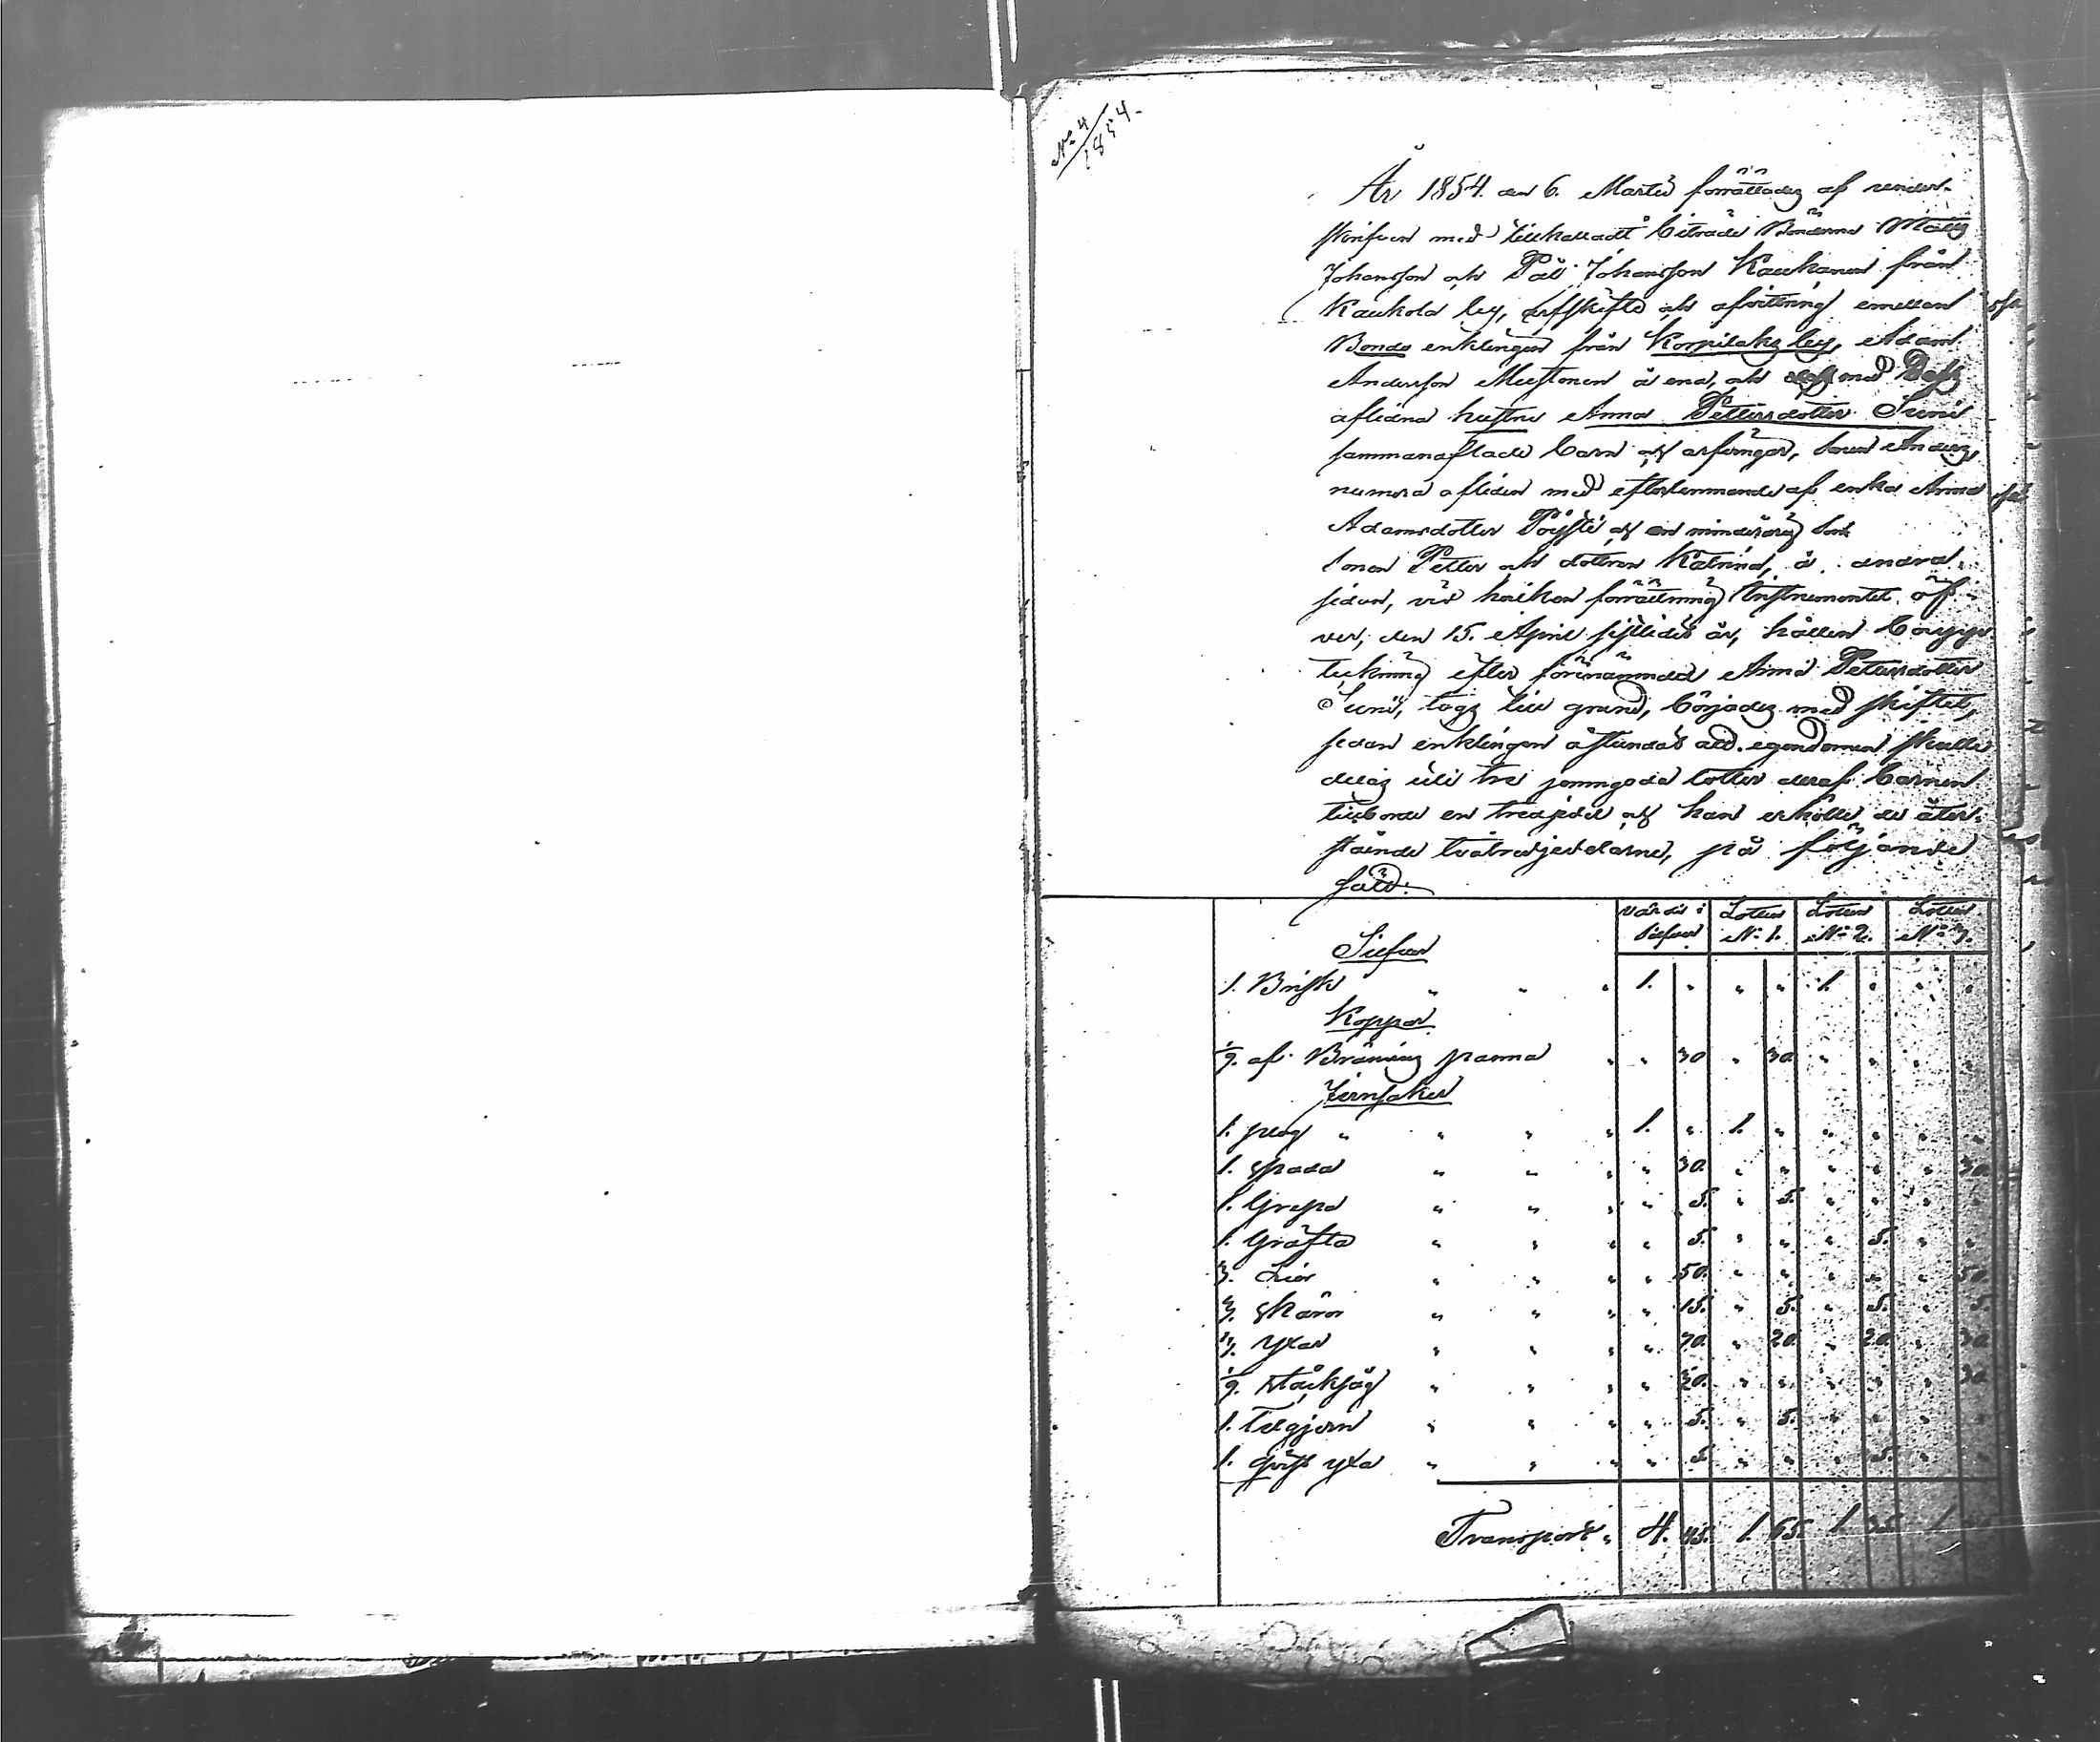 No 4
1854.
År 1854. den 6. Martii förrättades af under-
skrifven med tillkalladt biträde Bönderne Matts
Johansson och Pål Johansson Kaukanen från
Kaukola by, arfskifte och afvittring emellan
Bonde enklingen från Korpilaks by, Adam
Andersson Mustonen å ena, och dess med Dess
aflidna hustru Anna Pettersdotter Suni
sammanaflade barn och arfvingar, sonen Anders,
numera afliden med efterlemnande af enka Anna
Adamsdotter Pöysti och en minderårig son
sonen Petter och dottren Katrina, å andra
sidan, vid hvilken förrättning Instrumentet öf-
ver, den 15. April sistlidet år, hållen bouppt
teckning efter förenämnda Anna Pettersdotter
Suni, togs till grund, börjades med skiftet,
sedan enklingen åstundat att egendomen skulle
delas uti tre jemngoda lotter deraf barnen
tillborde en tredjedel och han erhölle de åter-
stående tvåtredjedelarne, på följande
sätt:
värde i Silfver Lotten No 1. Lotten No 2. Lotten No 3.
Silfver
1. Brisk " " " 1. " " " 1. " " "
Koppar
1/9. af Bränvins panna " " 30 " 30. " " " "
Jernsaker
1. plog " " " " 1. " 1. " " " " "
1. Spada " " " " 30. " " " " " 30.
1. Grepa " " " " 5. " 5. " " " "
1. Gräfta " " " " 5. " " " 5. " "
3. Liar " " " " 50. " " " " " 50.
3. Skäror " " " " 15. " 5. " 5. " 5.
Yxor " " " " 70. " 20. " 20. " 30.
Stocksåg " " " " 30. " " " " " 30
1. Telgjern " " " " 5. " 5. " " " "
1. yxa " " " " 5. " " " 5. " "
Transport " 4. 45. 1. 65. 1. 35. 1. 45.